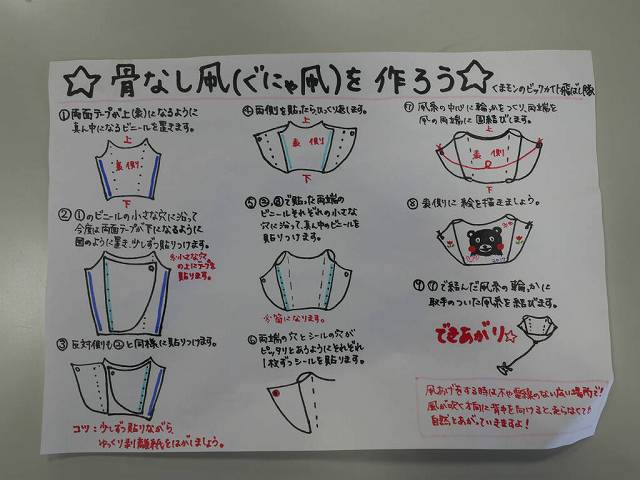 ☆骨なし凧(ぐにゃ凧)を作ろう☆
くまモンのビックカイト飛ばし隊
①両面テープが上(表)になるように
真ん中になるビニールを置きます。
上
裏側
下
②①のビニールの小さな穴に沿って
今度は両面テープが下になるように
図のように置き、少しずつ貼りつけます。
※小さな穴
の上にテープを
貼ります。
③反対側も②と同様に貼りつけます。
コツ:少しずつ貼りながら
ゆっくり剥離紙をはがしましょう。
④両側を貼ったらひっくり返します。
上
表側
下
⑤③,④で貼った両端の
ビニールそれぞれの小さな
穴に沿って、真ん中のビニールを
貼りつけます。
※筒になります。
⑥両端の穴とシールの穴が
ピッタリとあうようにそれぞれ
1枚ずつシールを貼ります。
⑦凧糸の中心に輪っかをつくり、両端を
凧の両端に固結びします。
上
裏側
下
⑧表側に絵を描きましょう。
⑨⑦で結んだ凧糸の輪っかに
取手のついた凧糸を結びます。
できあがり☆
凧あげをする時は木や電線のない広い場所で!
風が吹く方向に背中を向けると、走らなくても
自然とあがっていきますよ!